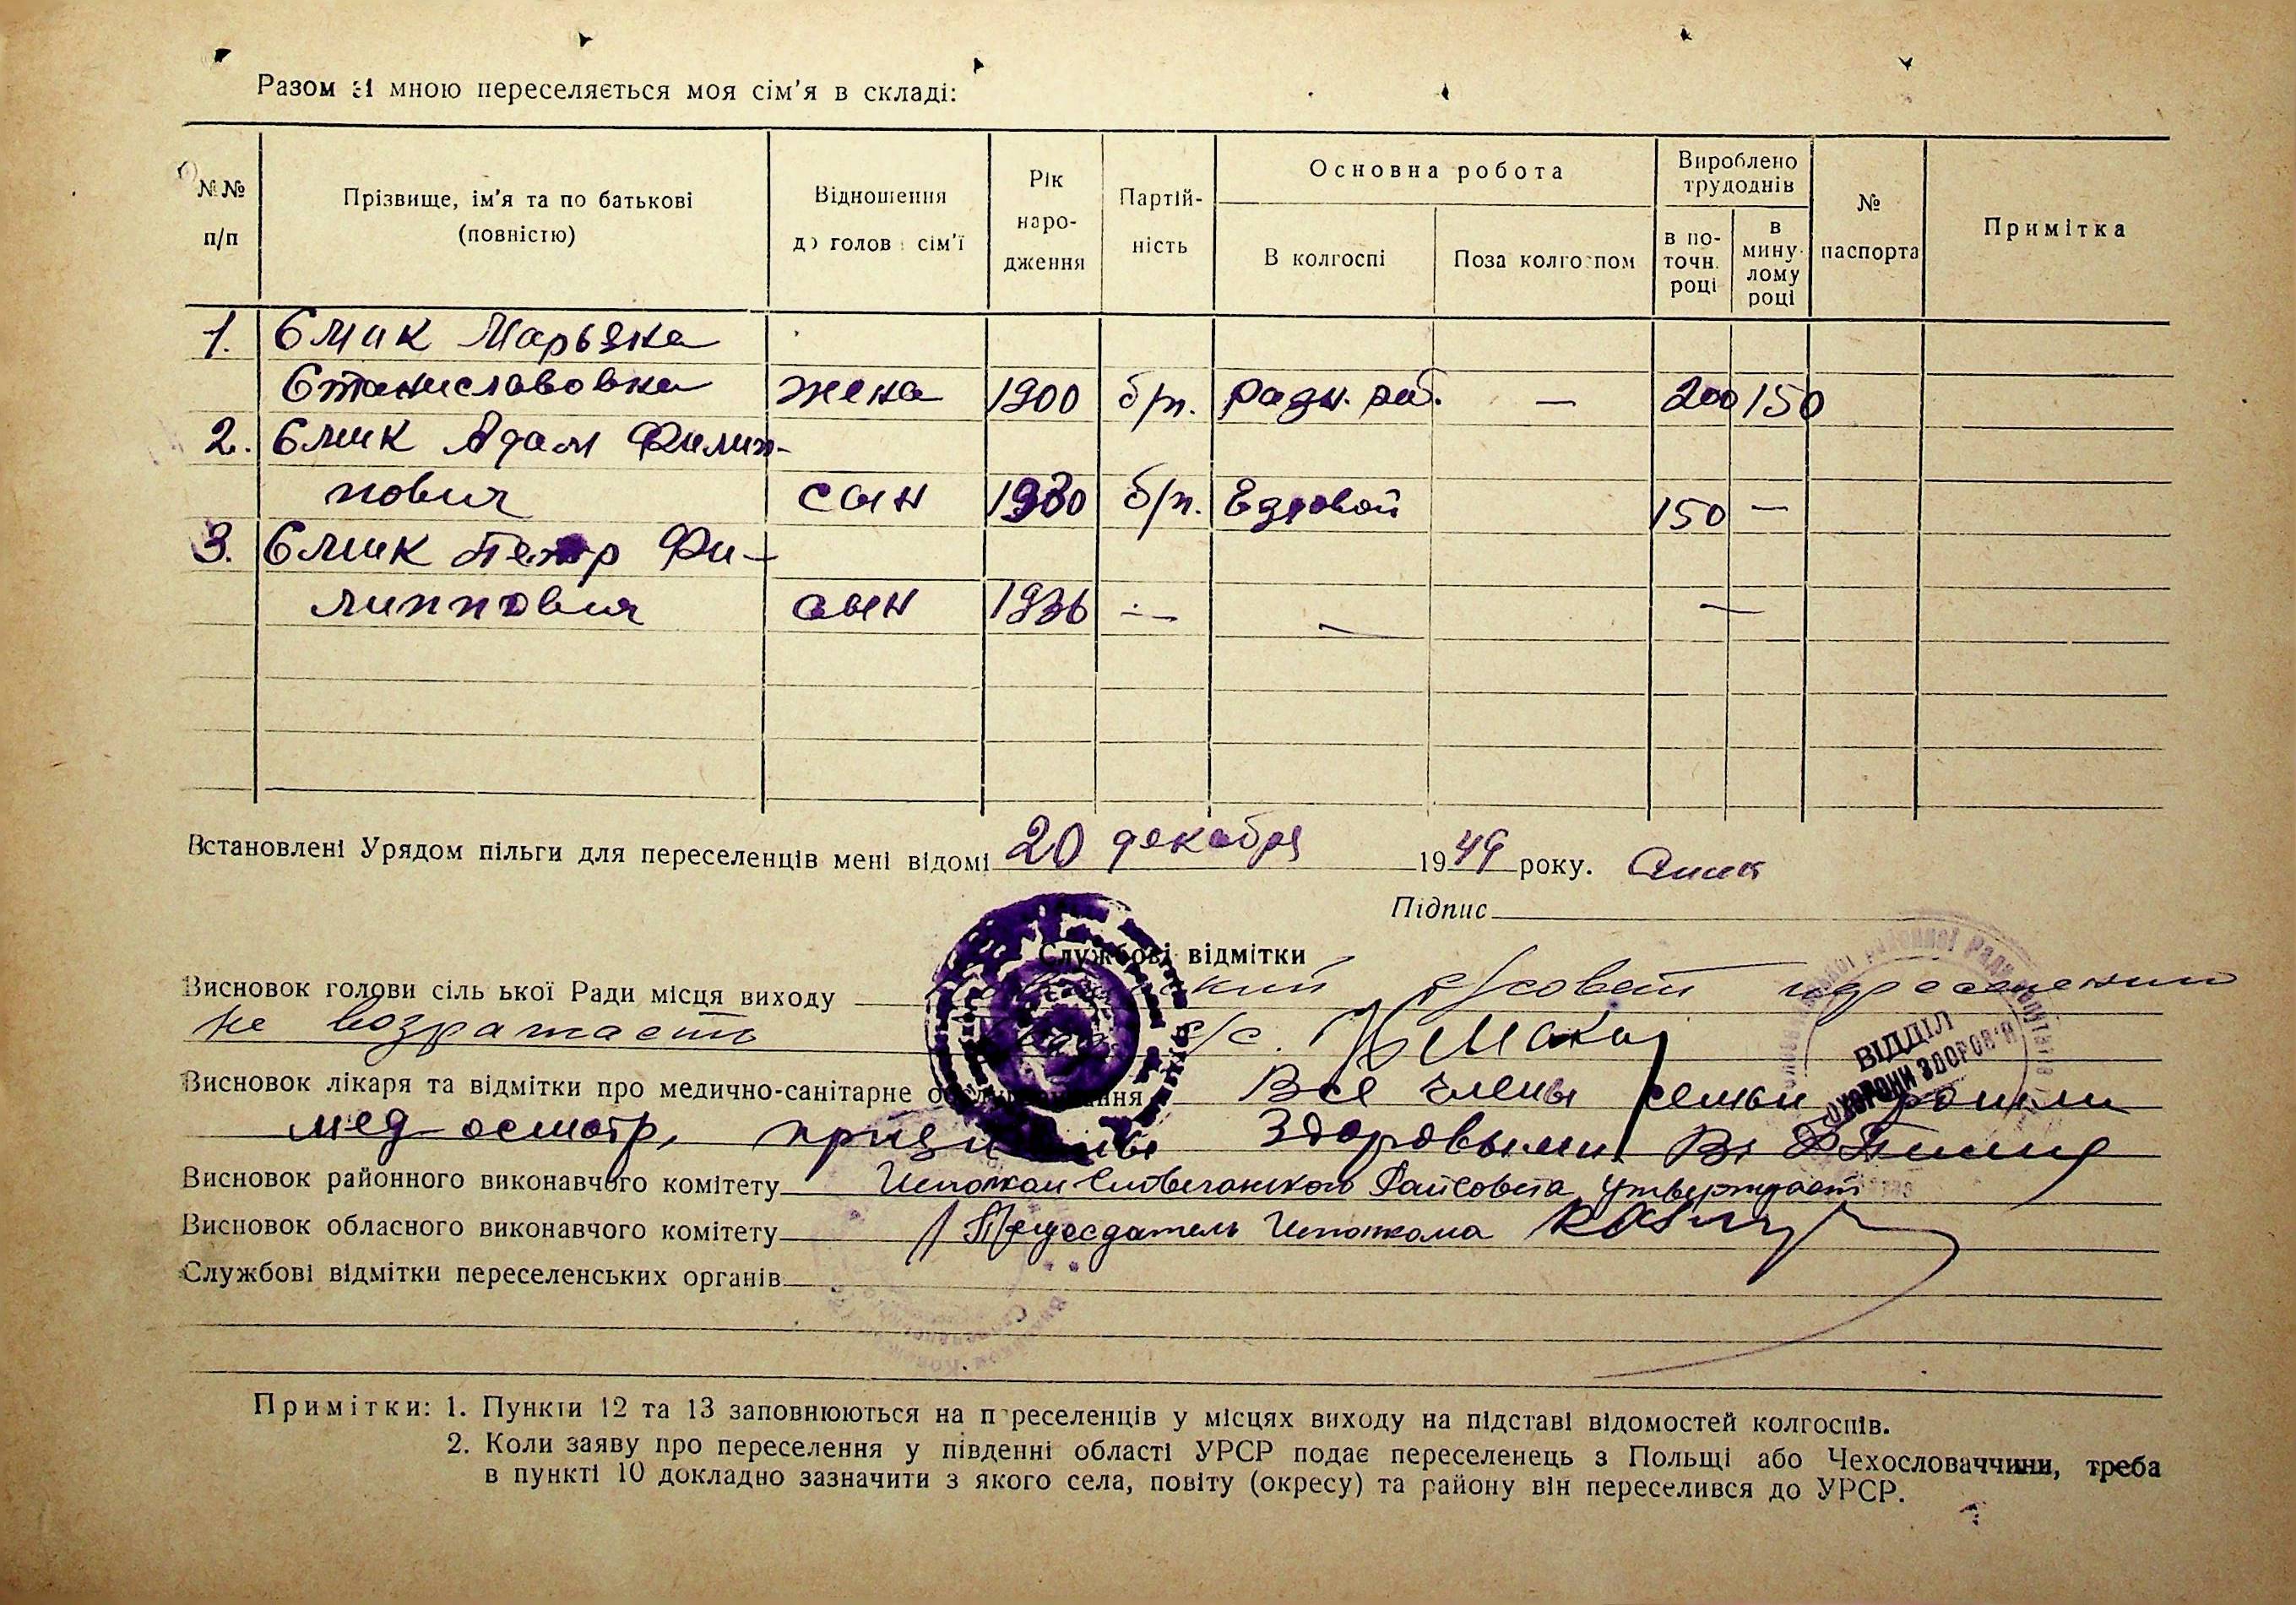 Разом зі мною переселяється моя сім'я в складі:
№№ п/п
Прізвище, ім'я та по батькові (повністю)
Відношення до голови сім'ї
Рік народження
Партійність
Основна робота
В колгоспі
Поза колгоспом
Вироблено трудоднів
в поточн. році
в минулому році
№ паспорта
Примітка
1. Смик Марьяна
Станиславовна жена 1900 б/п. рядн. раб. — 200 150
2. Смик Адам Филип-
пович сын 1930 б/п. Ездовой 150 —
3. Смик Петр Фи-
липпович сын 1936 — — —
Встановлені Урядом пільги для переселенців мені відомі 20 декабря 1949 року. Смик
Підпис
Службові відмітки
Висновок голови сільської Ради місця виходу кий с/совет
не возражает с/с.
Висновок лікаря та відмітки про медично-санітарне обслуговування Все члены семьи прошли
мед осмотр, признаны здоровыми Вр
Висновок районного виконавчого комітету Исполком Словечанского Райсовета утверждает
Висновок обласного виконавчого комітету Председатель Исполкома
Службові відмітки переселенських органів
ВІДДІЛ
ОХОРОНИ ЗДОРОВ'Я
Примітки: 1. Пункти 12 та 13 заповнюються на переселенців у місцях виходу на підставі відомостей колгоспів.
2. Коли заяву про переселення у південні області УРСР подає переселенець з Польщі або Чехословаччини, треба
в пункті 10 докладно зазначити з якого села, повіту (окресу) та району він переселився до УРСР.